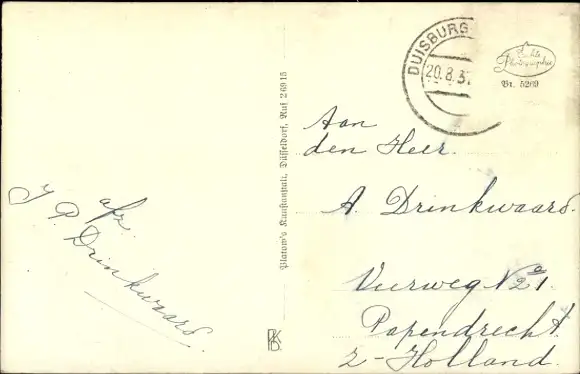 afz.
J P. Drinkwaard.
Platow's Kunstanstalt, Düsseldorf, Ruf 26915
DUISBURG
20.8.37
Echte
Photographie
Br. 5269
Aan
den Heer.
A. Drinkwaard.
Veerweg No 21.
Papendrecht.
Z-Holland.